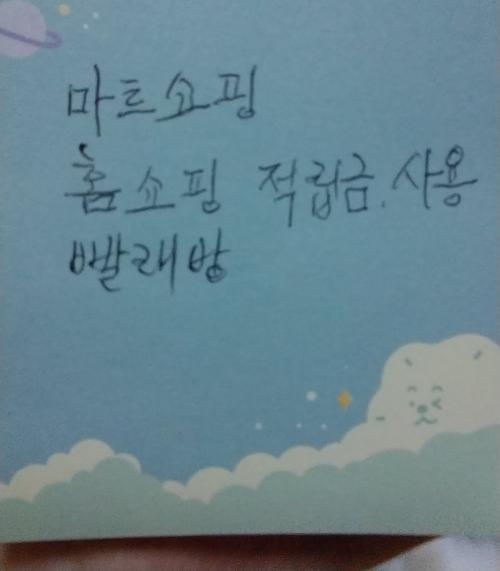 마트쇼핑
홈쇼핑 적립금.사용
빨래방